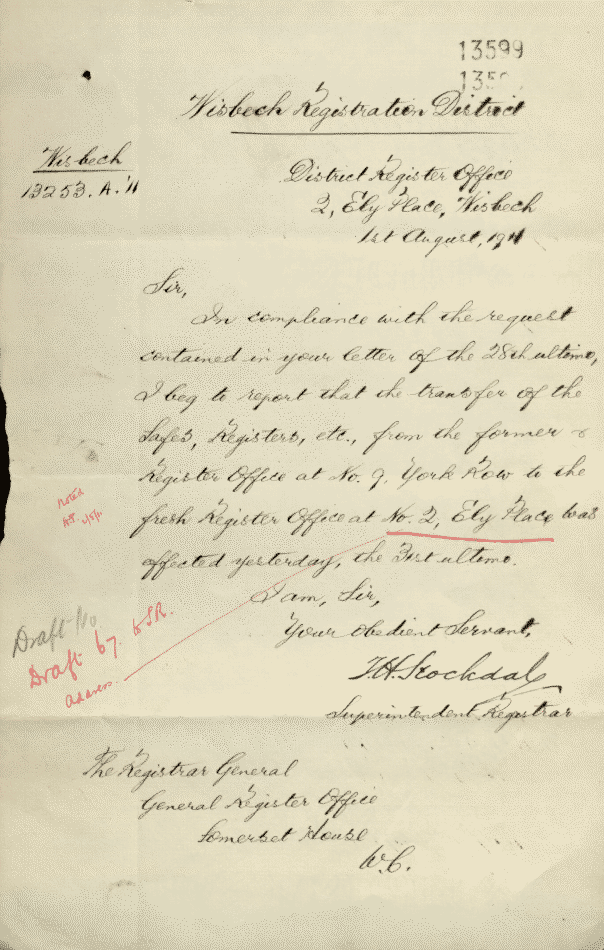 13599
Wisbech Registration District
Wisbech
13253. A. '11
District Register Office
2, Ely Place, Wisbech
1st August, 1911
Sir,
In compliance with the request
contained in your letter of the 28th ultimo,
I beg to report that the transfer of the
Safes, Registers, etc., from the former
Register Office at No. 9, York Row to the
fresh Register Office at No. 2, Ely Place was
effected yesterday, the 31st ultimo.
I am, Sir,
Your Obedient Servant,
F.H. Stockdale
Superintendent Registrar
noted
Draft No.
Draft 67.
address
The Registrar General
General Register Office
Somerset House
W.C.